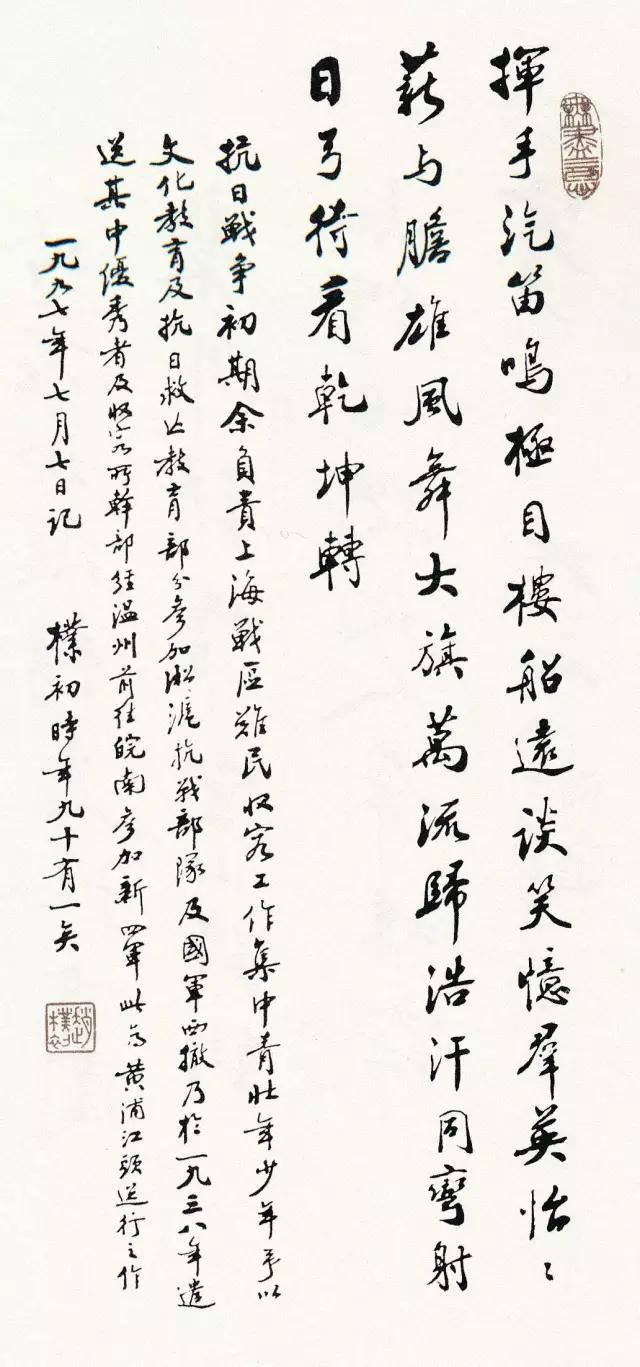 無盡意
揮手汽笛鳴極目樓船遠談笑憶羣英怡〻
薪与膽雄風舞大旗萬流歸浩汗同彎射
日弓待看乾坤轉
抗日戰争初期余負責上海戰區難民收容工作集中青壮年少年予以
文化教育及抗日救亡教育部分參加淞滬抗戰部隊及國軍西撤乃於一九三八年遣
送其中優秀者及收容所幹部經温州前往皖南參加新四軍此為黄浦江頭送行之作
一九九七年七月七日記 樸初時年九十有一矣
趙樸初